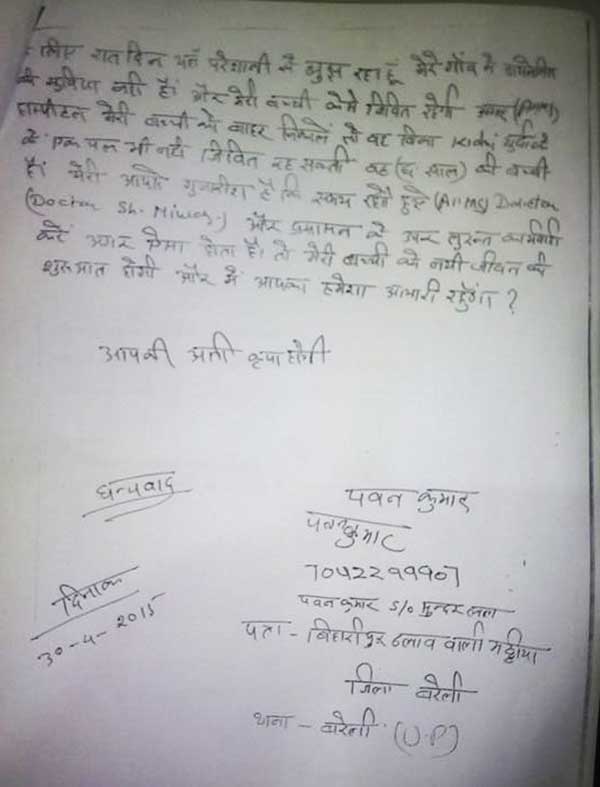 लिए रात दिन यहाँ परेशानी से जुझ रहा हूँ मेरे गाँव में
की सुविधा नही है। और मेरी बच्ची कैसे जिवित रहेगी अगर (AIIMS)
हास्पीटल मेरी बच्ची को बाहर निकाले तो वह बिना
के एक पल भी नहीं जिवित रह सकती वह (6 साल) की बच्ची
है। मेरी आपसे गुजारिश है कि रहते हुऐ (AIIMS) Director
(Doctor Sh. ) और प्रशासन के उपर तुरन्त कार्यवाही
करें अगर ऐसा होता है। तो मेरी बच्ची को नयी जीवन की
शुरूआत होगी और में आपका हमेशा आभारी रहूँगा ?
आपकी अती कृपा होगी
धन्यवाद
पवन कुमार
पवन कुमार
7042299907
दिनांक
30-4-2015
पवन कुमार S/o
पता - बिहारीपुर ढलाव वाली मठ्ठीया
जिला बरेली
थाना - बरेली (U.P)